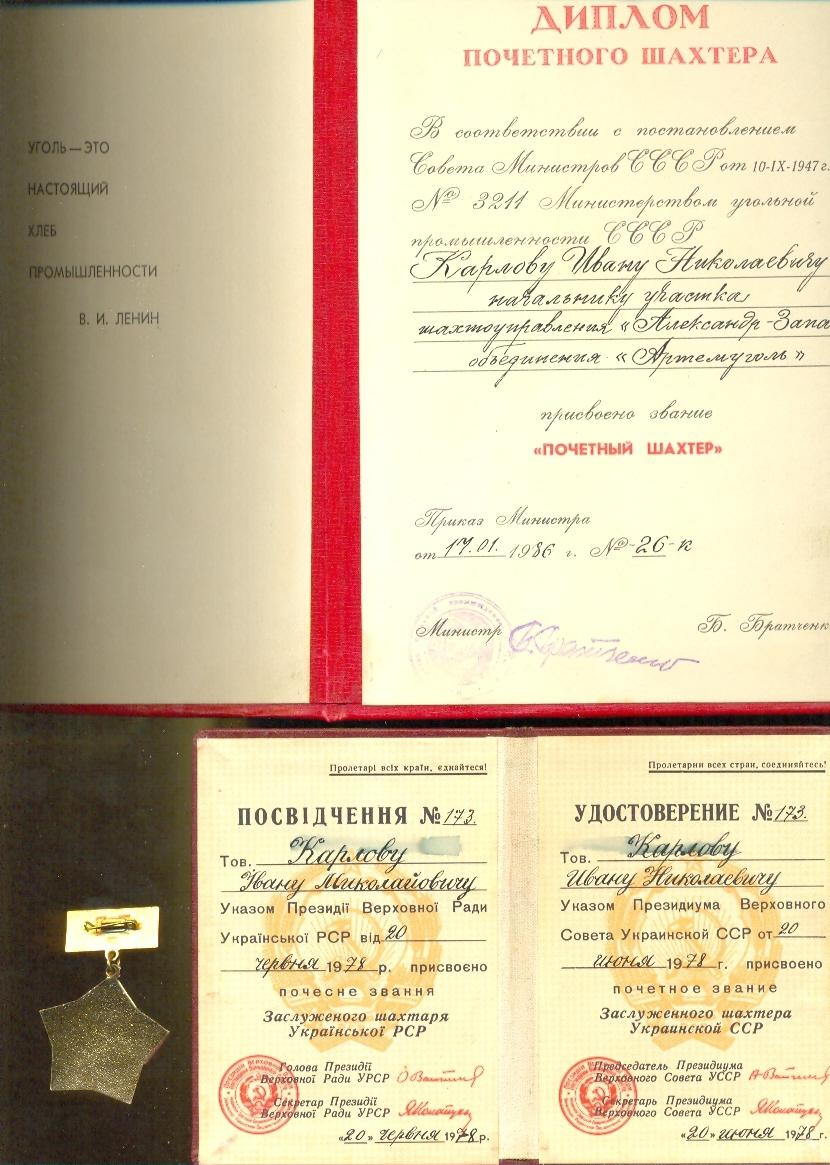 УГОЛЬ — ЭТО
НАСТОЯЩИЙ
ХЛЕБ
ПРОМЫШЛЕННОСТИ
В. И. ЛЕНИН
ДИПЛОМ
ПОЧЕТНОГО ШАХТЕРА
В соответствии с постановлением
Совета Министров СССР от 10-IX-1947 г.
№ 3211 Министерством угольной
промышленности СССР
Карлову Ивану Николаевичу
начальнику участка
шахтоуправления «Александр-Запа
объединения «Артемуголь»
присвоено звание
«ПОЧЕТНЫЙ ШАХТЕР»
Приказ Министра
от 17.01. 1986 г. № 26-к
Министр Б. Братченк
Пролетарі всіх країн, єднайтеся!
ПОСВІДЧЕННЯ № 173.
Тов. Карлову
Івану Миколайовичу
Указом Президії Верховної Ради
Української РСР від 20
червня 1978 р. присвоєно
почесне звання
Заслуженого шахтаря
Української РСР
Голова Президії
Верховної Ради УРСР
Секретар Президії
Верховної Ради УРСР
«20» червня 1978 р.
Пролетарии всех стран, соединяйтесь!
УДОСТОВЕРЕНИЕ № 173.
Тов. Карлову
Ивану Николаевичу
Указом Президиума Верховного
Совета Украинской ССР от 20
июня 1978 г. присвоено
почетное звание
Заслуженного шахтера
Украинской ССР
Председатель Президиума
Верховного Совета УССР
Секретарь Президиума
Верховного Совета УССР
«20» июня 1978 г.